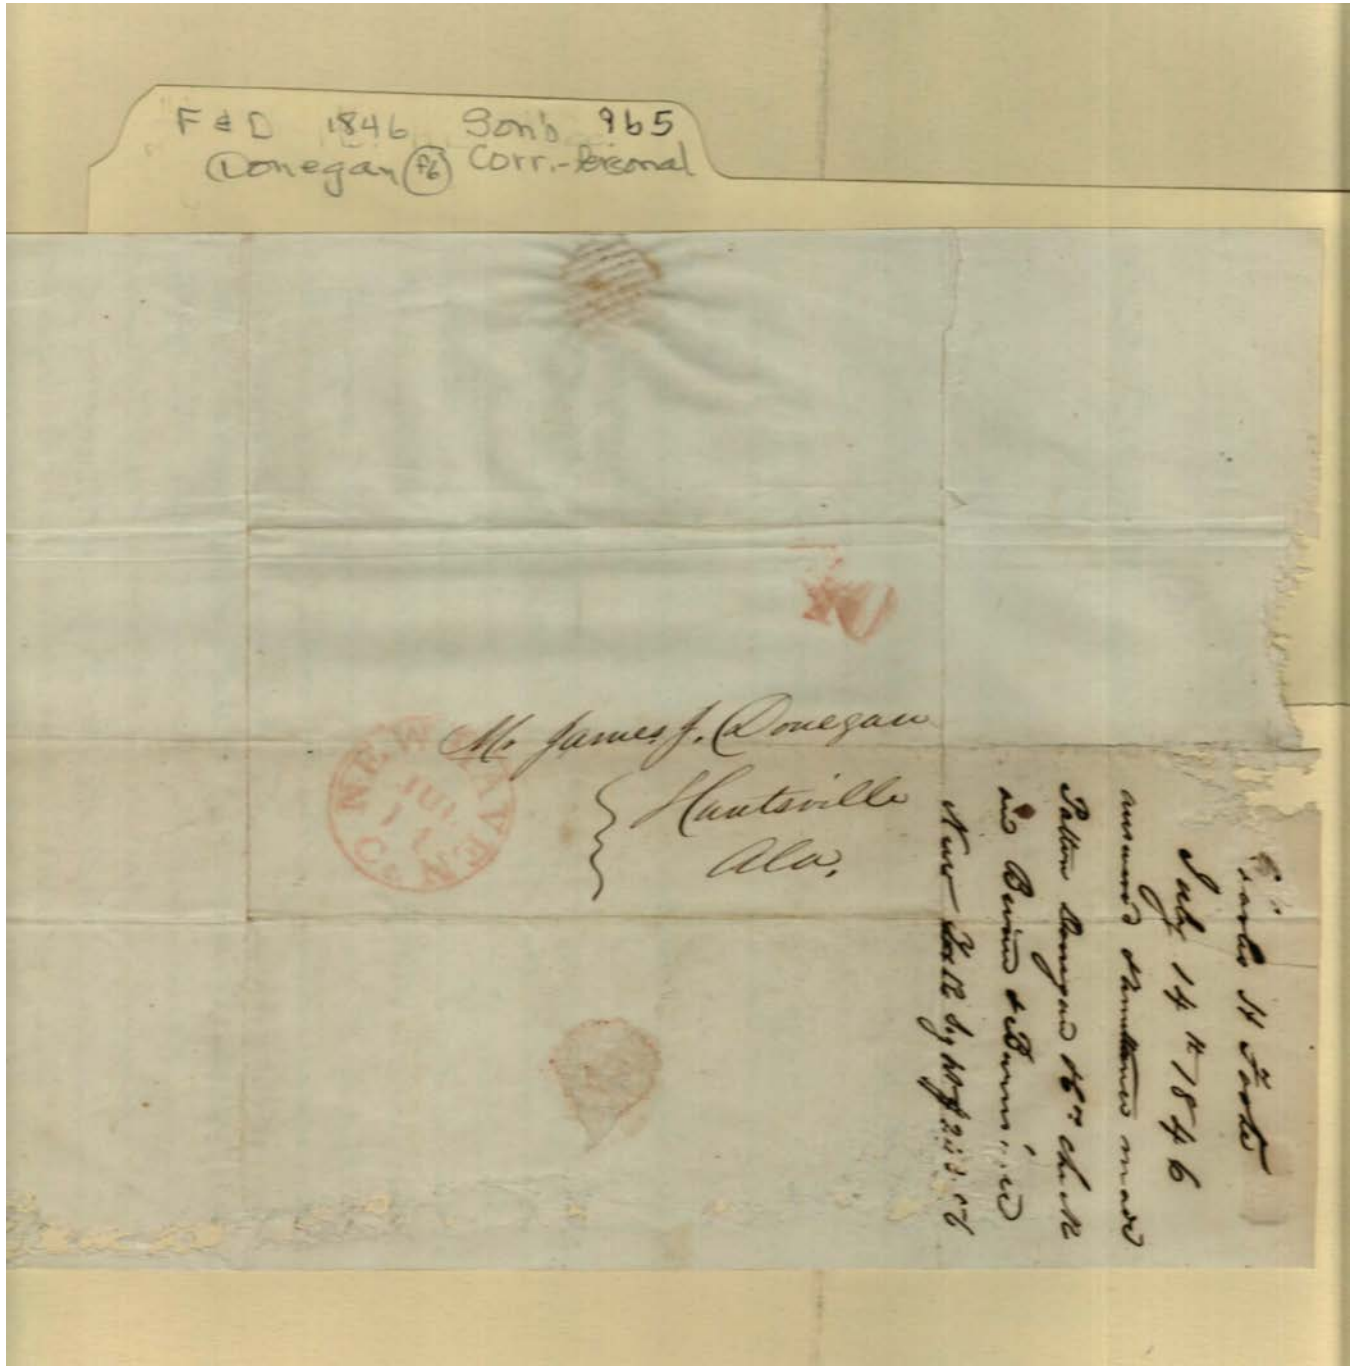 F & D 1846 Son's 965
Donegan f6 Corr.-Personal
NEW HAVEN
JUL
Ct
Mr James J. Donegan
Huntsville
Ala.
Charles H Foote
July 14th 1846
answered & remittance made
Patton Donegan & Co check
on
New York